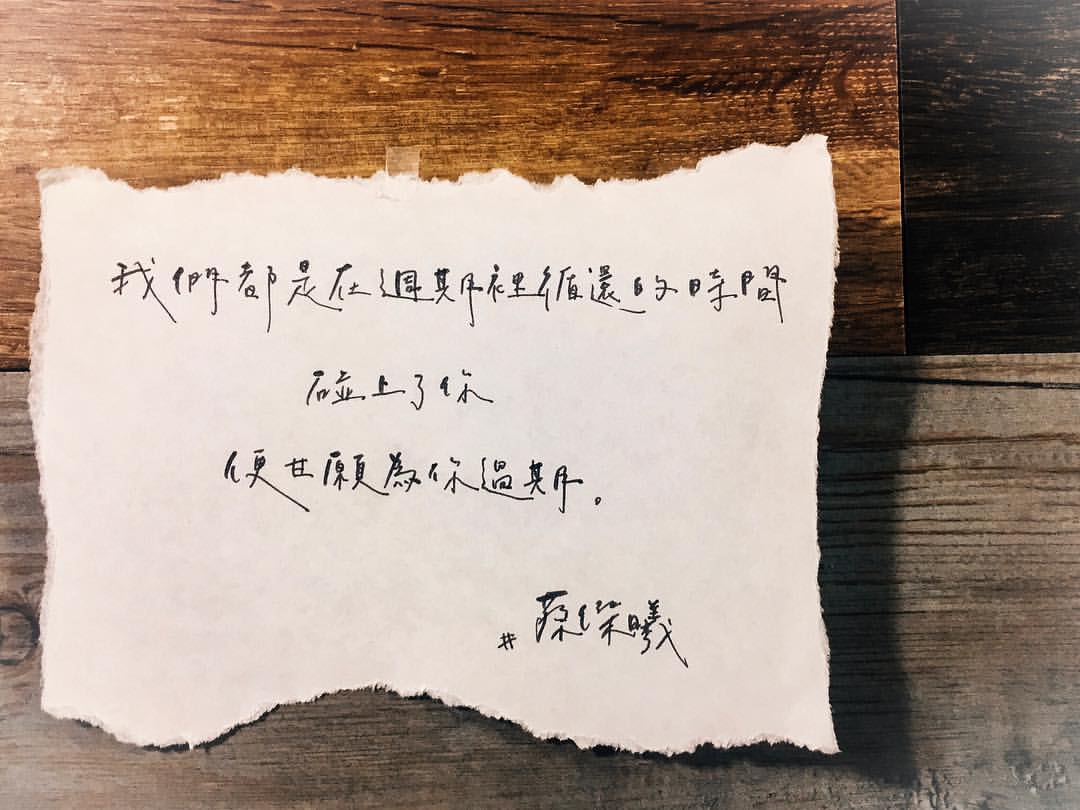 我們都是在週期裡循還的時間
碰上了你
便甘願為你過期。
#蔡傑曦